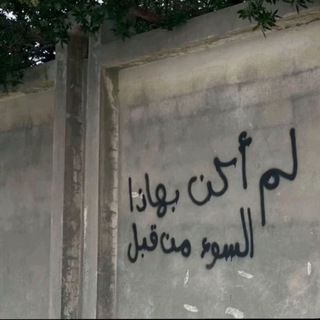 لم أكن بهاذا
السوء من قبل